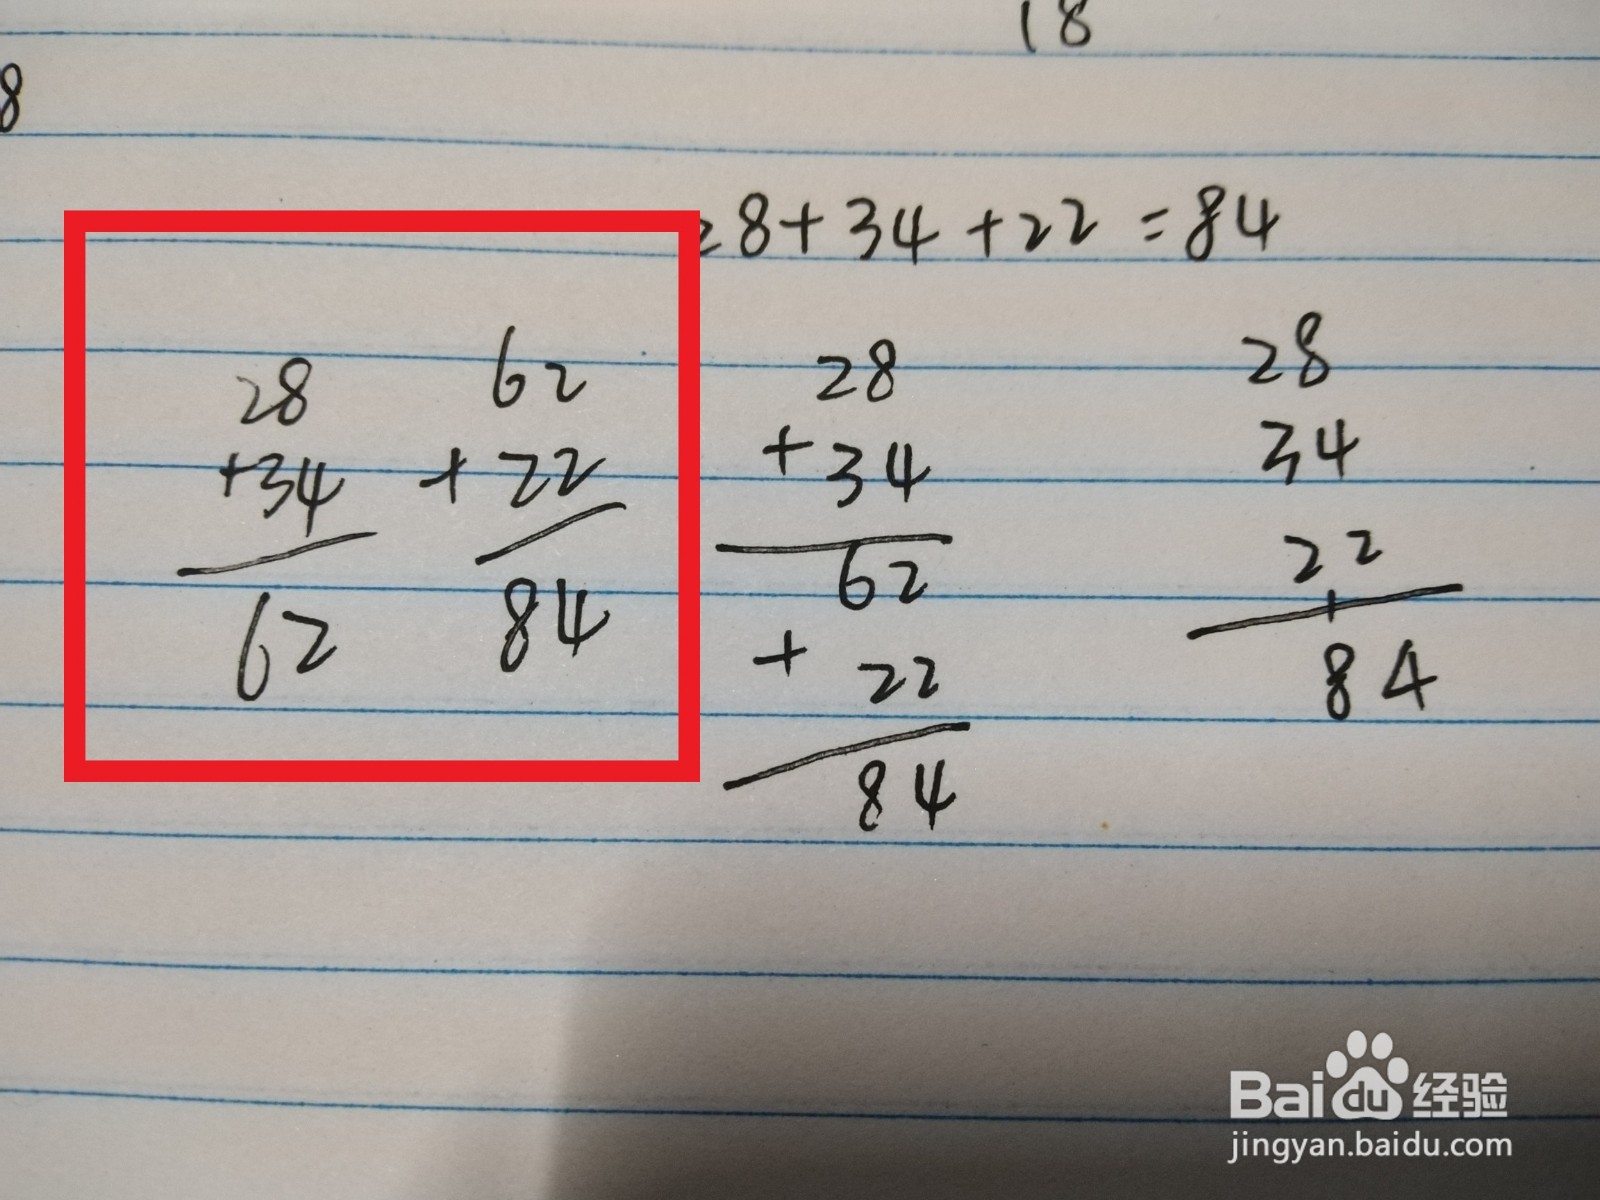 18
8
28+34+22=84
28
+34
62
62
+22
84
28
+34
62
+22
84
28
34
22
84
Baidu经验
jingyan.baidu.com